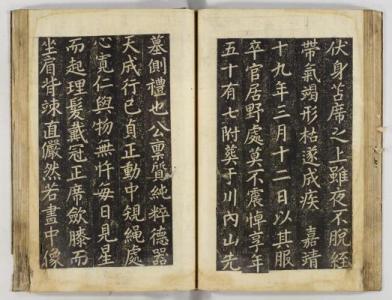 伏身苫席之上雖夜不脫絰
帶氣竭形枯遂成疾　嘉靖
十九年三月十二日以其服
卒官居野處莫不震悼享年
五十有七附葬于川內山先
墓側禮也公稟質純粹德器
天成行已貞正動中䂓繩處
心寬仁與物無忤每日見星
而起理髮戴冠正席斂膝而
坐肩背竦直儼然若畫中像